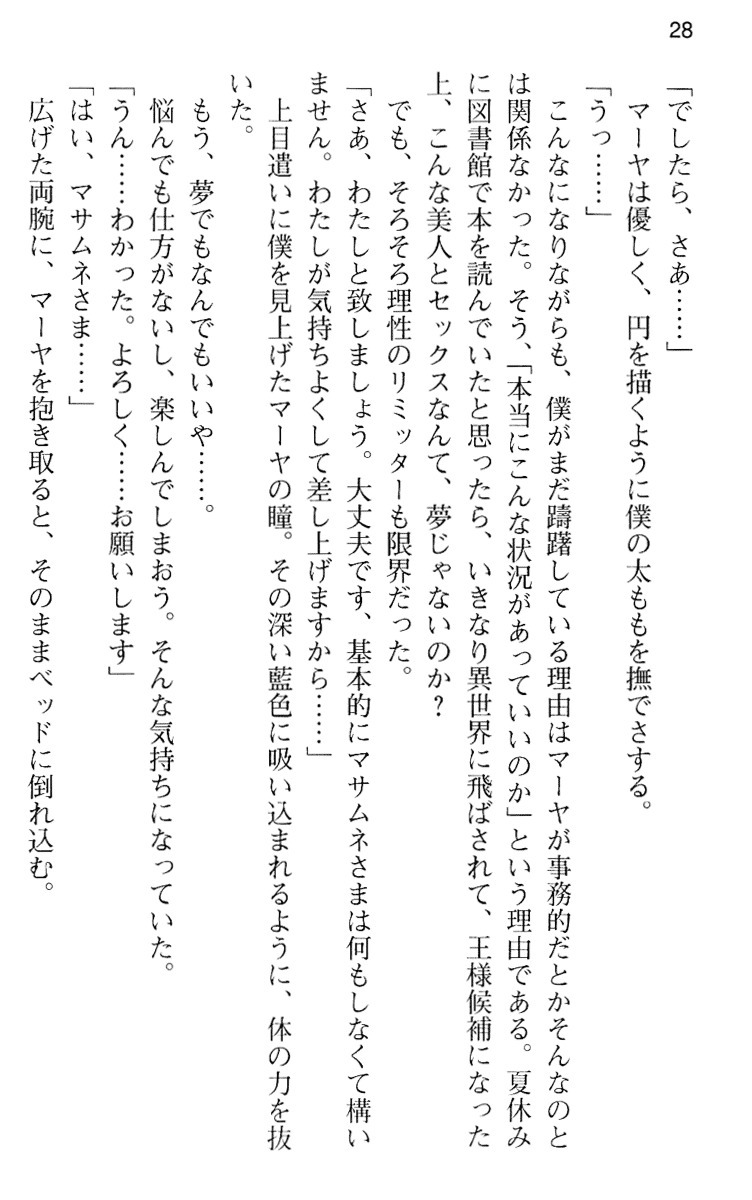 28
「でしたら、さあ……」
マーヤは優しく、円を描くように僕の太ももを撫でさする。
「うっ……」
こんなになりながらも、僕がまだ躊躇している理由はマーヤが事務的だとかそんなのと
は関係なかった。そう、「本当にこんな状況があっていいのか」という理由である。夏休み
に図書館で本を読んでいたと思ったら、いきなり異世界に飛ばされて、王様候補になった
上、こんな美人とセックスなんて、夢じゃないのか?
でも、そろそろ理性のリミッターも限界だった。
「さあ、わたしと致しましょう。大丈夫です、基本的にマサムネさまは何もしなくて構い
ません。わたしが気持ちよくして差し上げますから……」
上目遣いに僕を見上げたマーヤの瞳。その深い藍色に吸い込まれるように、体の力を抜
いた。
もう、夢でもなんでもいいや……。
悩んでも仕方がないし、楽しんでしまおう。そんな気持ちになっていた。
「うん……わかった。よろしく……お願いします」
「はい、マサムネさま……」
広げた両腕に、マーヤを抱き取ると、そのままベッドに倒れ込む。